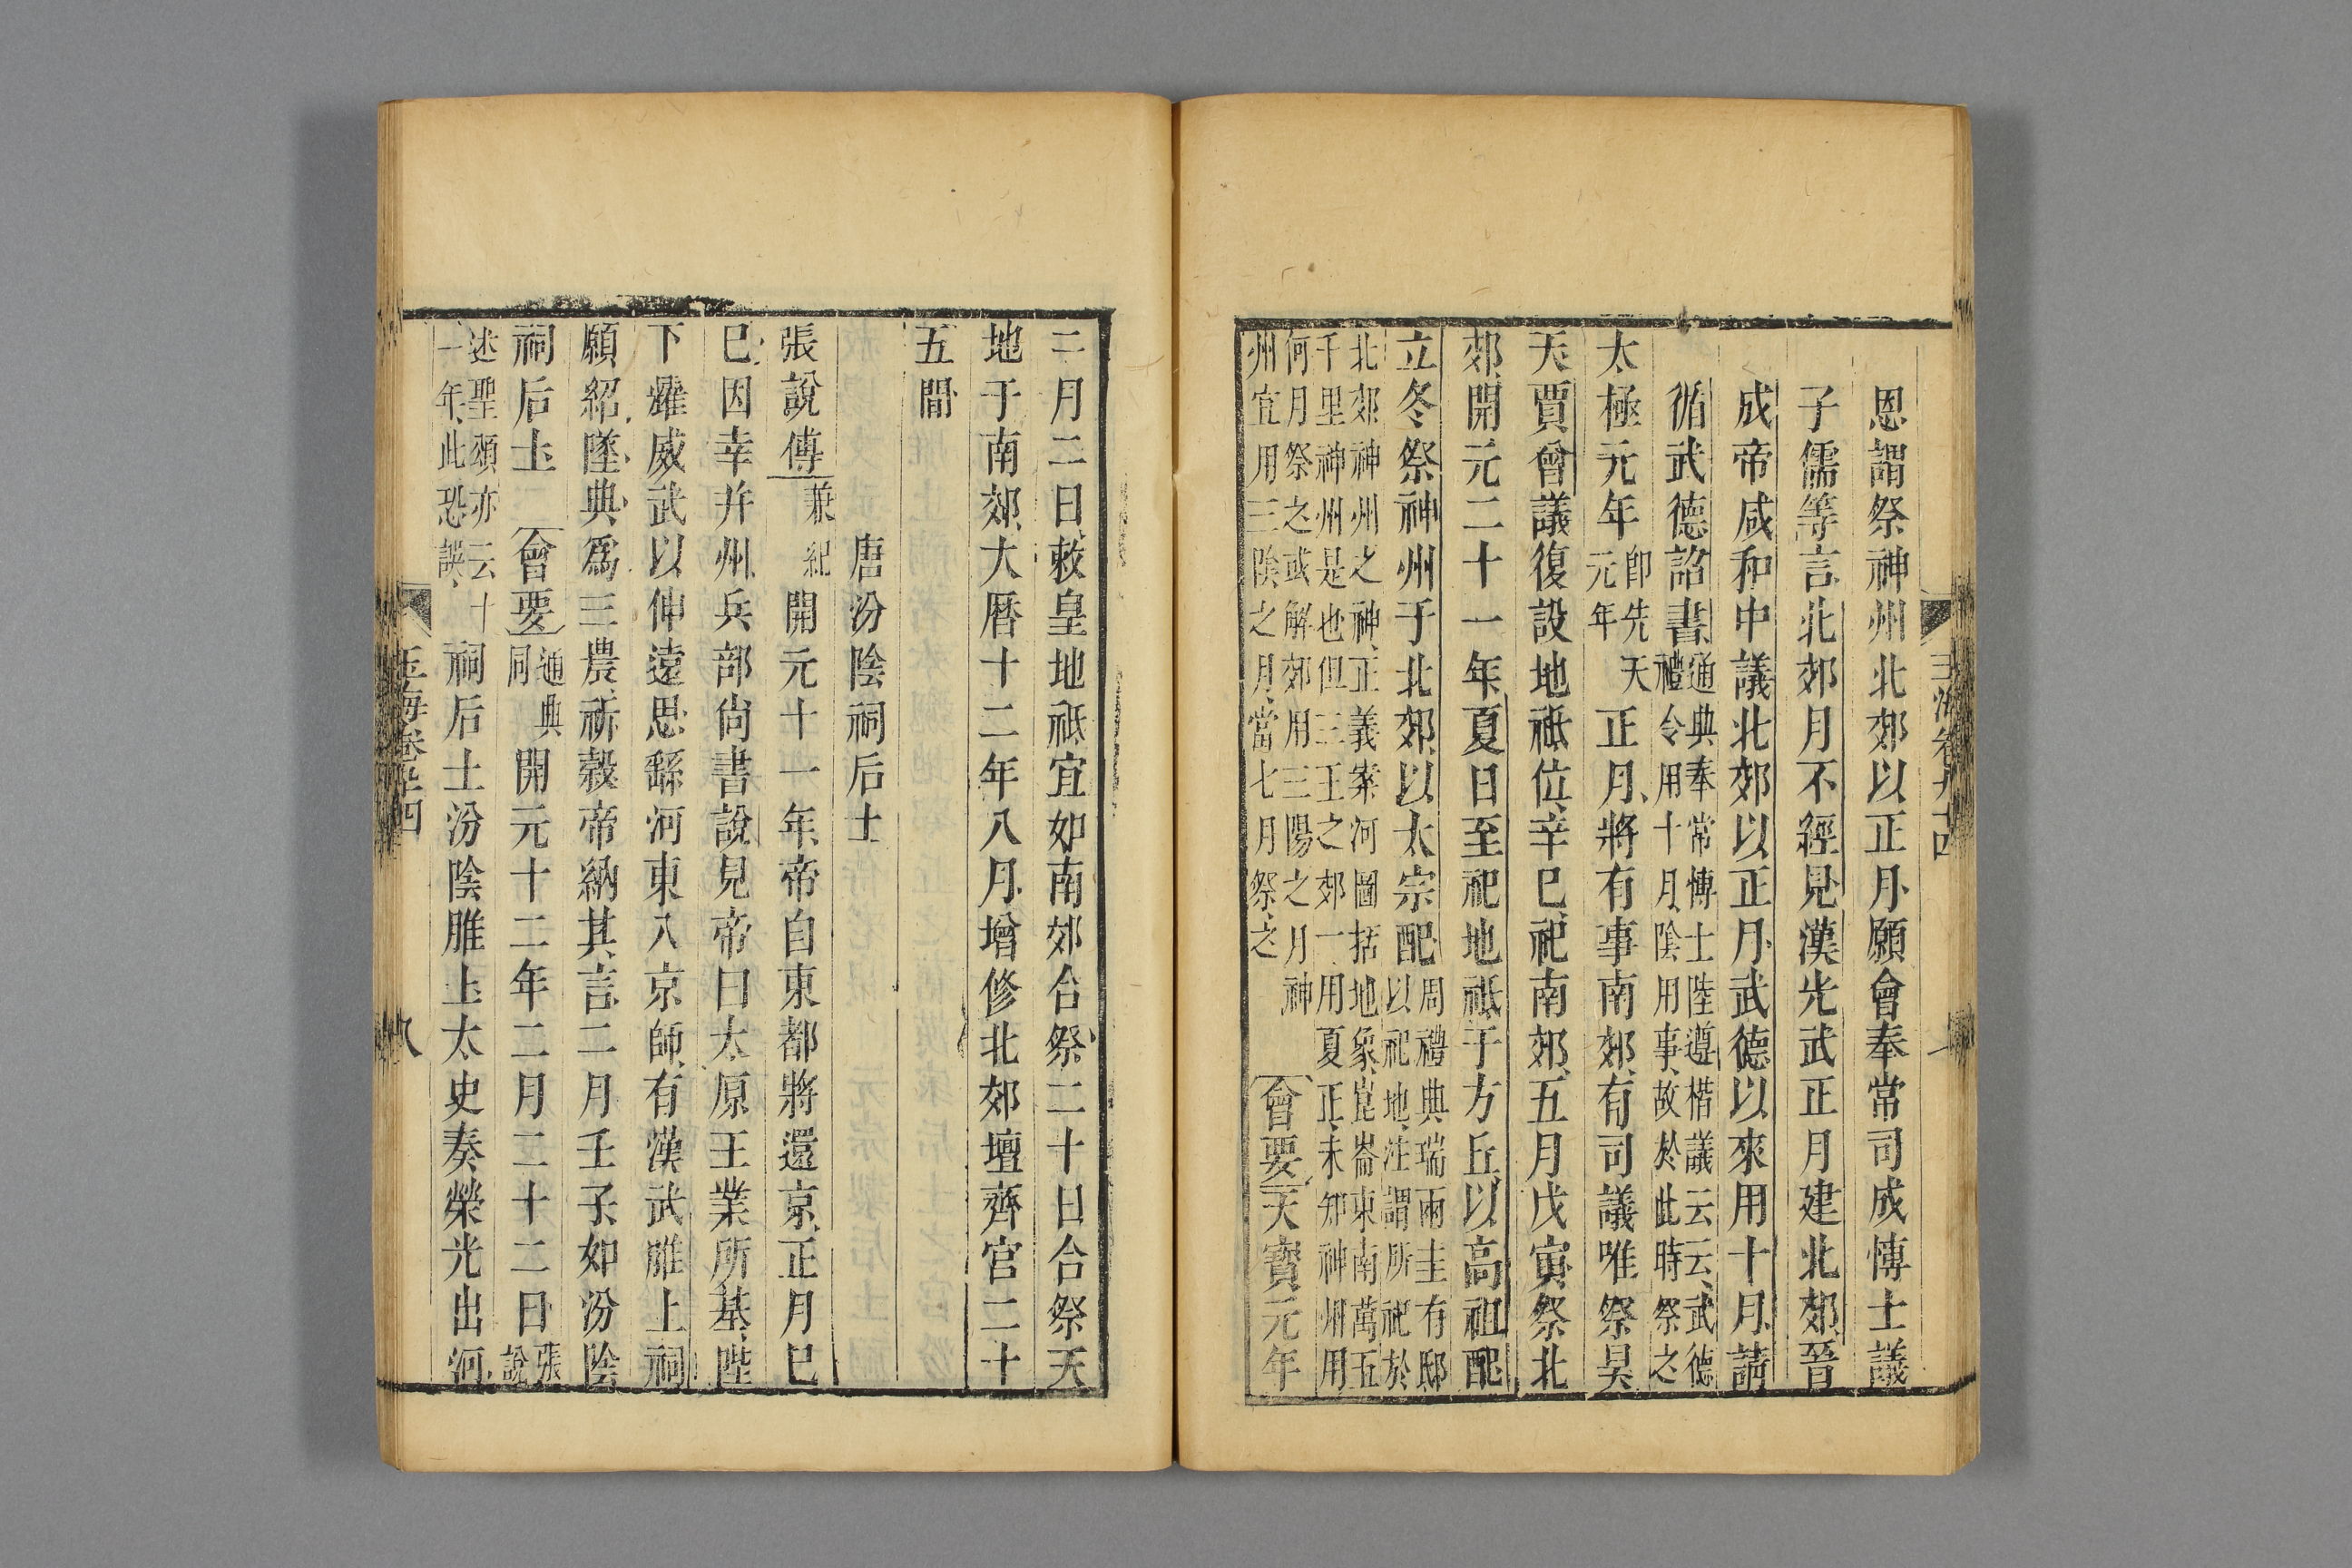 恩謂祭神州北郊以正月願會奉常司成博士議
子儒等言北郊月不經見漢光武正月建北郊晉
成帝咸和中議北郊以正月武德以來用十月請
循武德詔書通典奉常博士陸遵楷議云云武德
禮令用十月陰用事故於此時祭之
太極元年卽先天
元年正月將有事南郊有司議唯祭昊
天賈曾議復設地祇位辛巳祀南郊五月戊寅祭北
郊開元二十一年夏日至祀地祇于方丘以高祖配
立冬祭神州于北郊以太宗配周禮典瑞兩圭有邸
以祀地注謂所祀於
北郊神州之神正義案河圖括地象崑崙東南萬五
千里神州是也但三王之郊一用夏正未知神州用
何月祭之或解郊用三陽之月神
州宜用三陰之月當七月祭之會要天寶元年
玉海卷九十四
二月二日敕皇地祇宜如南郊合祭二十日合祭天
地于南郊大曆十二年八月增修北郊壇齊宮二十
五間
唐汾陰祠后土
張說傳兼紀開元十一年帝自東都將還京正月巳
巳因幸并州兵部尙書說見帝曰太原王業所基陛
下燿威武以伸遠思繇河東入京師有漢武脽上祠
願紹墜典爲三農祈榖帝納其言二月壬子如汾陰
祠后土會要通典
同開元十二年二月二十二日張
說
述聖頌亦云十
一年此恐誤祠后土汾陰脽上太史奏榮光出河
玉海卷九十四
八